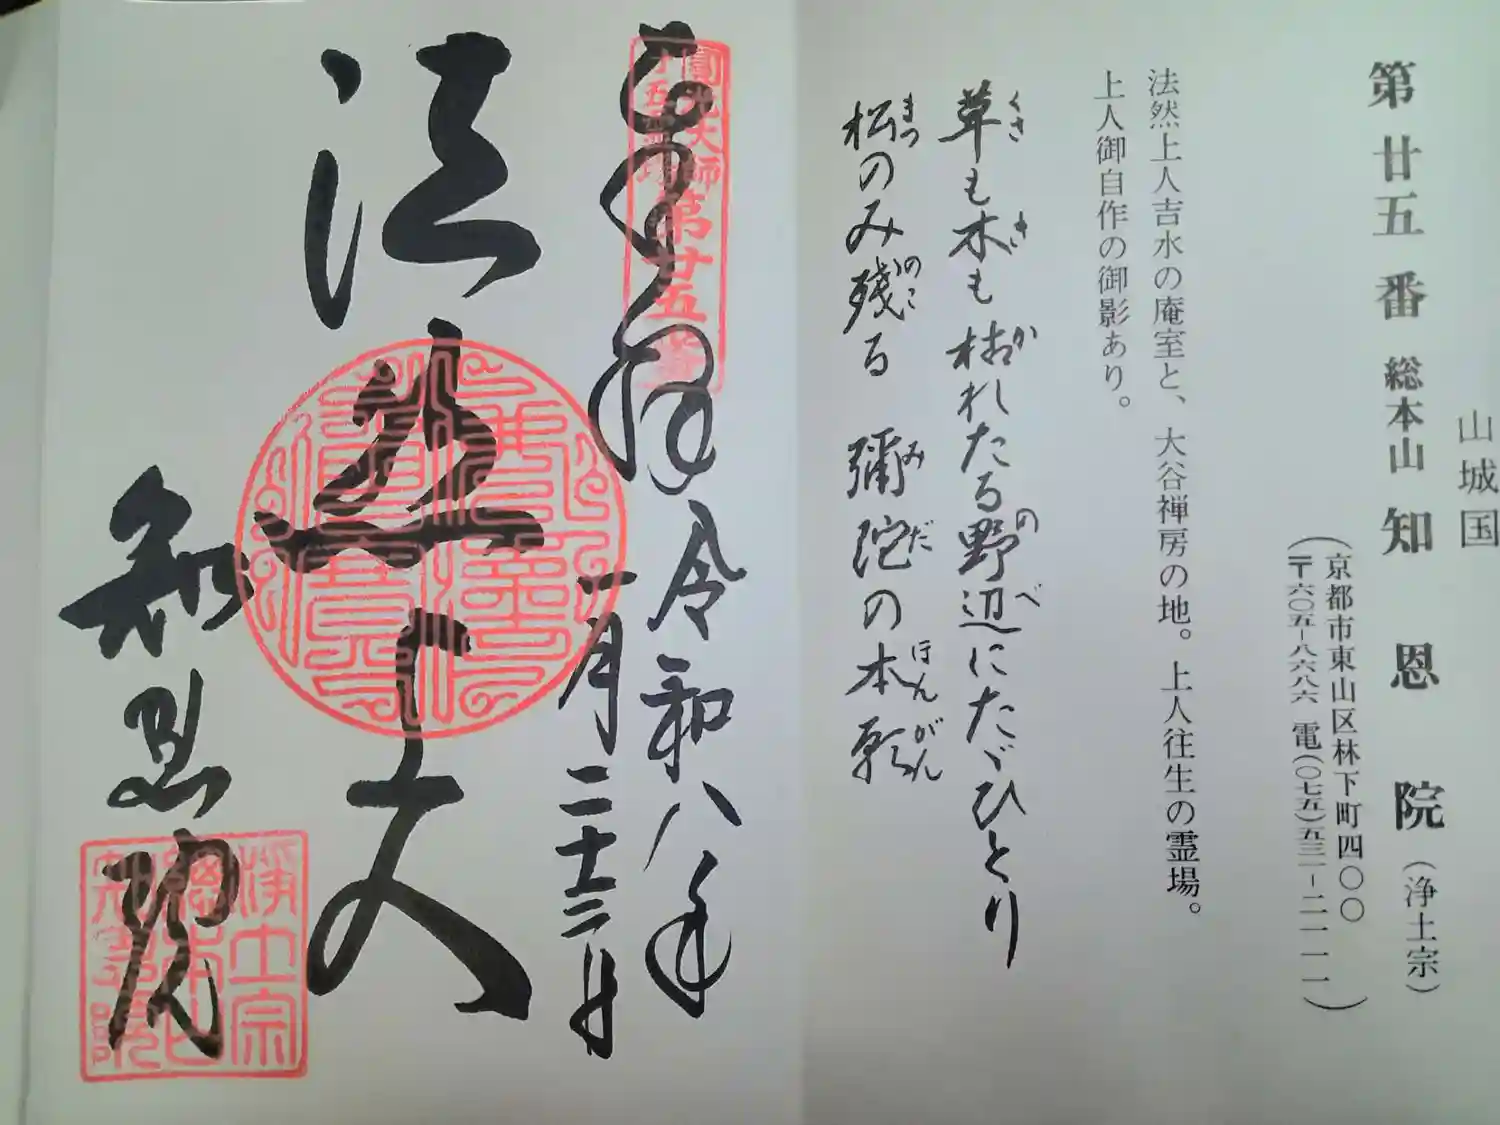 山城国
第廿五番 総本山 知恩院（浄土宗）
（京都市東山区林下町四〇〇
〒六〇五－八六八六 電（〇七五）五三一－二一一一）
法然上人吉水の庵室と、大谷禅房の地。上人往生の霊場。
上人御自作の御影あり。
草も木も枯れたる野辺にたゞひとり
くさ き か のべ
松のみ残る 彌陀の本願
まつ のこ みだ ほんがん
奉拝 令和八年
一月二十二日
圓光大師
第廿五番
法然上人
知恩院
浄土宗
總本山
知恩院